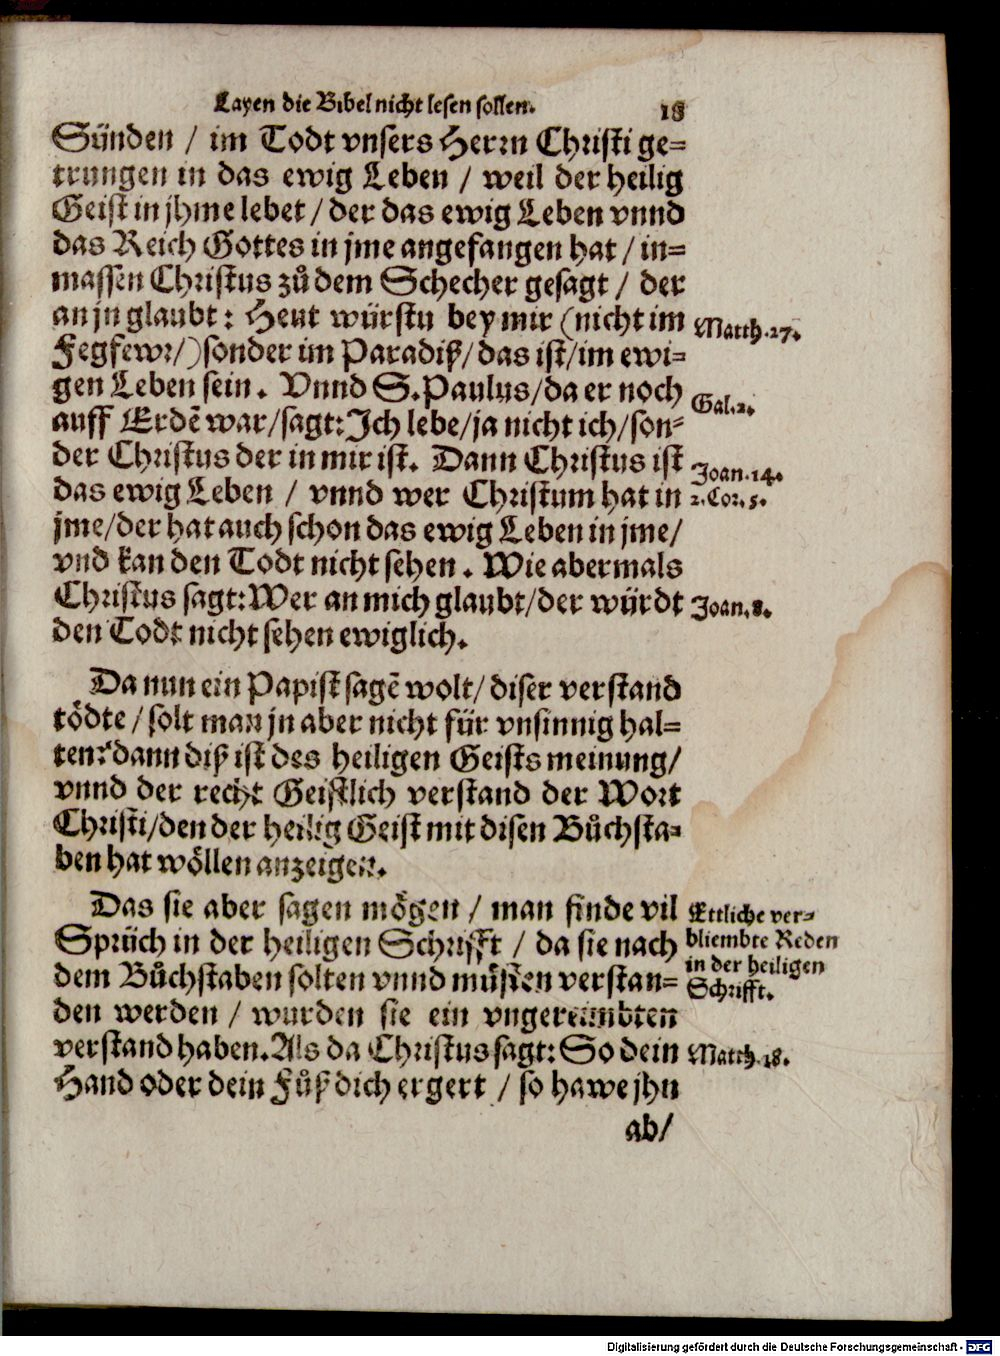 Layen die Bibel nicht lesen sollen. 18
Sünden / im Todt vnsers Herrn Christi ge-
trungen in das ewig Leben / weil der heilig
Geist in jhme lebet / der das ewig Leben vnnd
das Reich Gottes in jme angefangen hat / in-
massen Christus zůdem Schecher gesagt / der
an jn glaubt: Heut würstu bey mir (nicht im
Matth. 27.
Fegfewr/) sonder im Paradiß / das ist / im ewi-
gen Leben sein. Vnnd S. Paulus / da er noch
Gal. 2.
auff Erdē war / sagt: Ich lebe / ja nicht ich / son-
der Christus der in mir ist. Dann Christus ist
Joan. 14.
das ewig Leben / vnnd wer Christum hat in
2. Cor. 5.
jme / der hat auch schon das ewig Leben in jme /
vnd kan den Todt nicht sehen. Wie abermals
Christus sagt: Wer an mich glaubt / der würdt
Joan. 8.
den Todt nicht sehen ewiglich.
Da nun ein Papist sagē wolt / diser verstand
tödte / solt man jn aber nicht für vnsinnig hal-
ten? dann diß ist des heiligen Geists meinung /
vnnd der recht Geistlich verstand der Wort
Christi / den der heilig Geist mit disen Bůchsta-
ben hat wöllen anzeigen.
Das sie aber sagen mögen / man finde vil
Ettliche ver-
Sprüch in der heiligen Schrifft / da sie nach
bliembte Reden
in der heiligen
dem Bůchstaben solten vnnd müsten verstan-
Schrifft.
den werden / wurden sie ein vngereimbten
verstand haben. Als da Christus sagt: So dein
Matth. 18.
Hand oder dein Fůß dich ergert / so hawe jhn
ab/
Digitalisierung gefördert durch die Deutsche Forschungsgemeinschaft - DFG